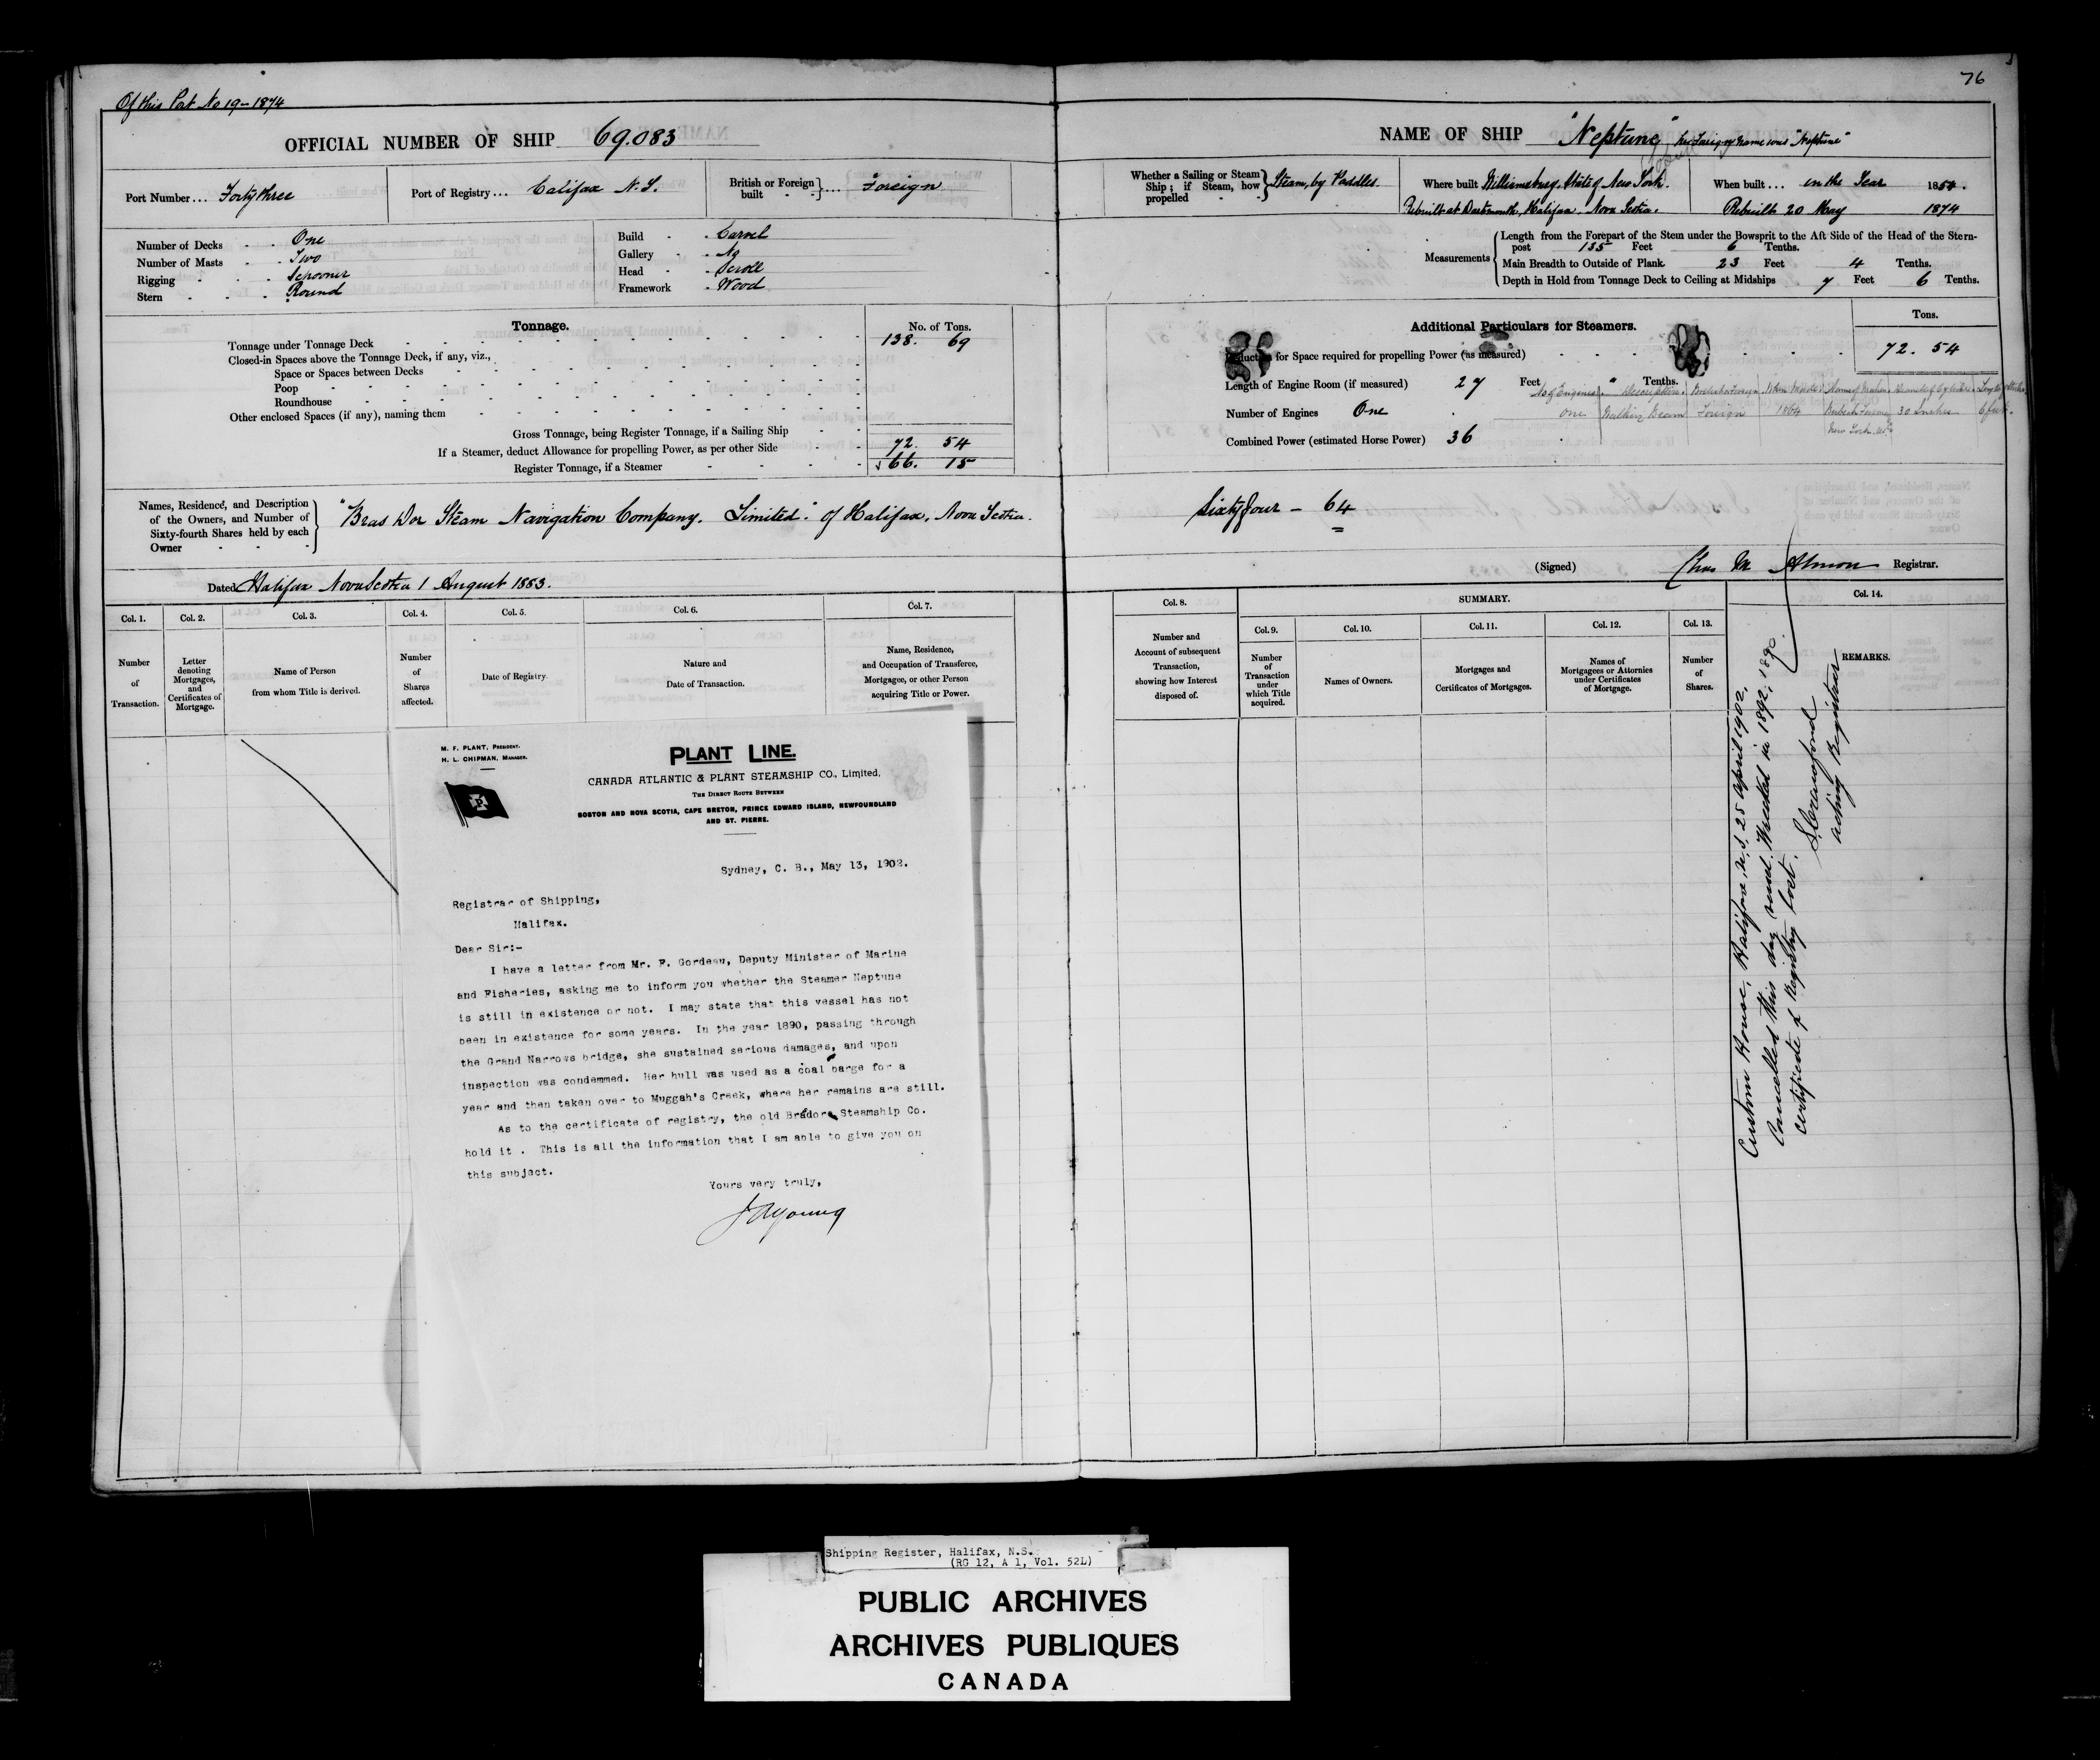 Of this Port No 19 – 1874
76
OFFICIAL NUMBER OF SHIP 69.083
NAME OF SHIP "Neptune" her Foreign name was "Neptune"
Port Number ... Forty three
Port of Registry ... Halifax N.S.
British or Foreign built } ... Foreign
Whether a Sailing or Steam Ship; if Steam, how propelled } Steam, by Paddles.
Where built Williamsburg. State of New York.
Rebuilt at Dartmouth, Halifax. Nova Scotia.
When built ... in the Year 1854.
Rebuilt 20 May 1874
Number of Decks One
Number of Masts Two
Rigging Schooner
Stern Round
Build Carvel
Gallery No
Head Scroll
Framework Wood
Measurements
Length from the Forepart of the Stem under the Bowsprit to the Aft Side of the Head of the Stern-
post 135 Feet 6 Tenths.
Main Breadth to Outside of Plank 23 Feet 4 Tenths.
Depth in Hold from Tonnage Deck to Ceiling at Midships 7 Feet 6 Tenths.
Tonnage.
No. of Tons.
Tonnage under Tonnage Deck 138. 69
Closed-in Spaces above the Tonnage Deck, if any, viz.,
Space or Spaces between Decks
Poop
Roundhouse
Other enclosed Spaces (if any), naming them
Gross Tonnage, being Register Tonnage, if a Sailing Ship
If a Steamer, deduct Allowance for propelling Power, as per other Side 72. 54
Register Tonnage, if a Steamer 66. 15
Additional Particulars for Steamers.
Tons.
Deduction for Space required for propelling Power (as measured) 72. 54
Length of Engine Room (if measured) 27 Feet " Tenths.
Number of Engines One
Combined Power (estimated Horse Power) 36
No of Engines Description British or Foreign When Made Name of Makers Diameter of Cylinders Length of Stroke
One Walking Beam Foreign 1864 30 Inches 6 feet.
New York. US
Names, Residence, and Description
of the Owners, and Number of
Sixty-fourth Shares held by each
Owner
"Bras Dor Steam Navigation Company. Limited." of Halifax. Nova Scotia.
Sixty four – 64
Dated Halifax Nova Scotia 1 August 1883.
(Signed) Chas M Almon Registrar.
Col. 1.
Number
of
Transaction.
Col. 2.
Letter
denoting
Mortgages,
and
Certificates of
Mortgage.
Col. 3.
Name of Person
from whom Title is derived.
Col. 4.
Number
of
Shares
affected.
Col. 5.
Date of Registry.
Col. 6.
Nature and
Date of Transaction.
Col. 7.
Name, Residence,
and Occupation of Transferee,
Mortgagee, or other Person
acquiring Title or Power.
Col. 8.
Number and
Account of subsequent
Transaction,
showing how Interest
disposed of.
SUMMARY.
Col. 9.
Number
of
Transaction
under
which Title
acquired.
Col. 10.
Names of Owners.
Col. 11.
Mortgages and
Certificates of Mortgages.
Col. 12.
Names of
Mortgagees or Attornies
under Certificates
of Mortgage.
Col. 13.
Number
of
Shares.
Col. 14.
REMARKS.
Custom House, Halifax, N.S. 25 April 1902.
Cancelled this day vessel Wrecked in 1892, 1890.
certificate of Registry lost.
S Crawford
acting Registrar
M. F. PLANT, PRESIDENT.
H. L. CHIPMAN, MANAGER.
P
PLANT LINE.
CANADA ATLANTIC & PLANT STEAMSHIP CO., Limited.
THE DIRECT ROUTE BETWEEN
BOSTON AND NOVA SCOTIA, CAPE BRETON, PRINCE EDWARD ISLAND, NEWFOUNDLAND
AND ST. PIERRE.
Sydney, C. B., May 13, 1902.
Registrar of Shipping,
Halifax.
Dear Sir:-
I have a letter from Mr. F. Gordeau, Deputy Minister of Marine
and Fisheries, asking me to inform you whether the Steamer Neptune
is still in existence or not. I may state that this vessel has not
been in existence for some years. In the year 1890, passing through
the Grand Narrows bridge, she sustained serious damages, and upon
inspection was condemmed. Her hull was used as a coal barge for a
year and then taken over to Muggah's Creek, where her remains are still.
As to the certificate of registry, the old Brador Steamship Co.
hold it . This is all the information that I am able to give you on
this subject.
Yours very truly,
J A Young
Shipping Register, Halifax, N.S.
(RG 12, A 1, Vol. 52L)
PUBLIC ARCHIVES
ARCHIVES PUBLIQUES
CANADA